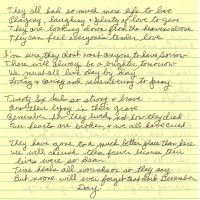 They all had so much more life to live
Playing, laughing & plenty of love to give
They are looking down from the heavens above
They can feel everyone's tender love

I'm sure they don't want anyone to have sorrow
There will always be a brighter tomorrow
We must all live day by day
Loving & caring and remembering to pray

Twenty six lads so strong & brave
lying in their grave
Remember how they lived not how they died
Our hearts are broken & we all have cried

They have gone to a much better place than here
We will cherish the few because their
lives were so dear
Time heals all wounds or so they say
But none will ever forget that dark December
Day!